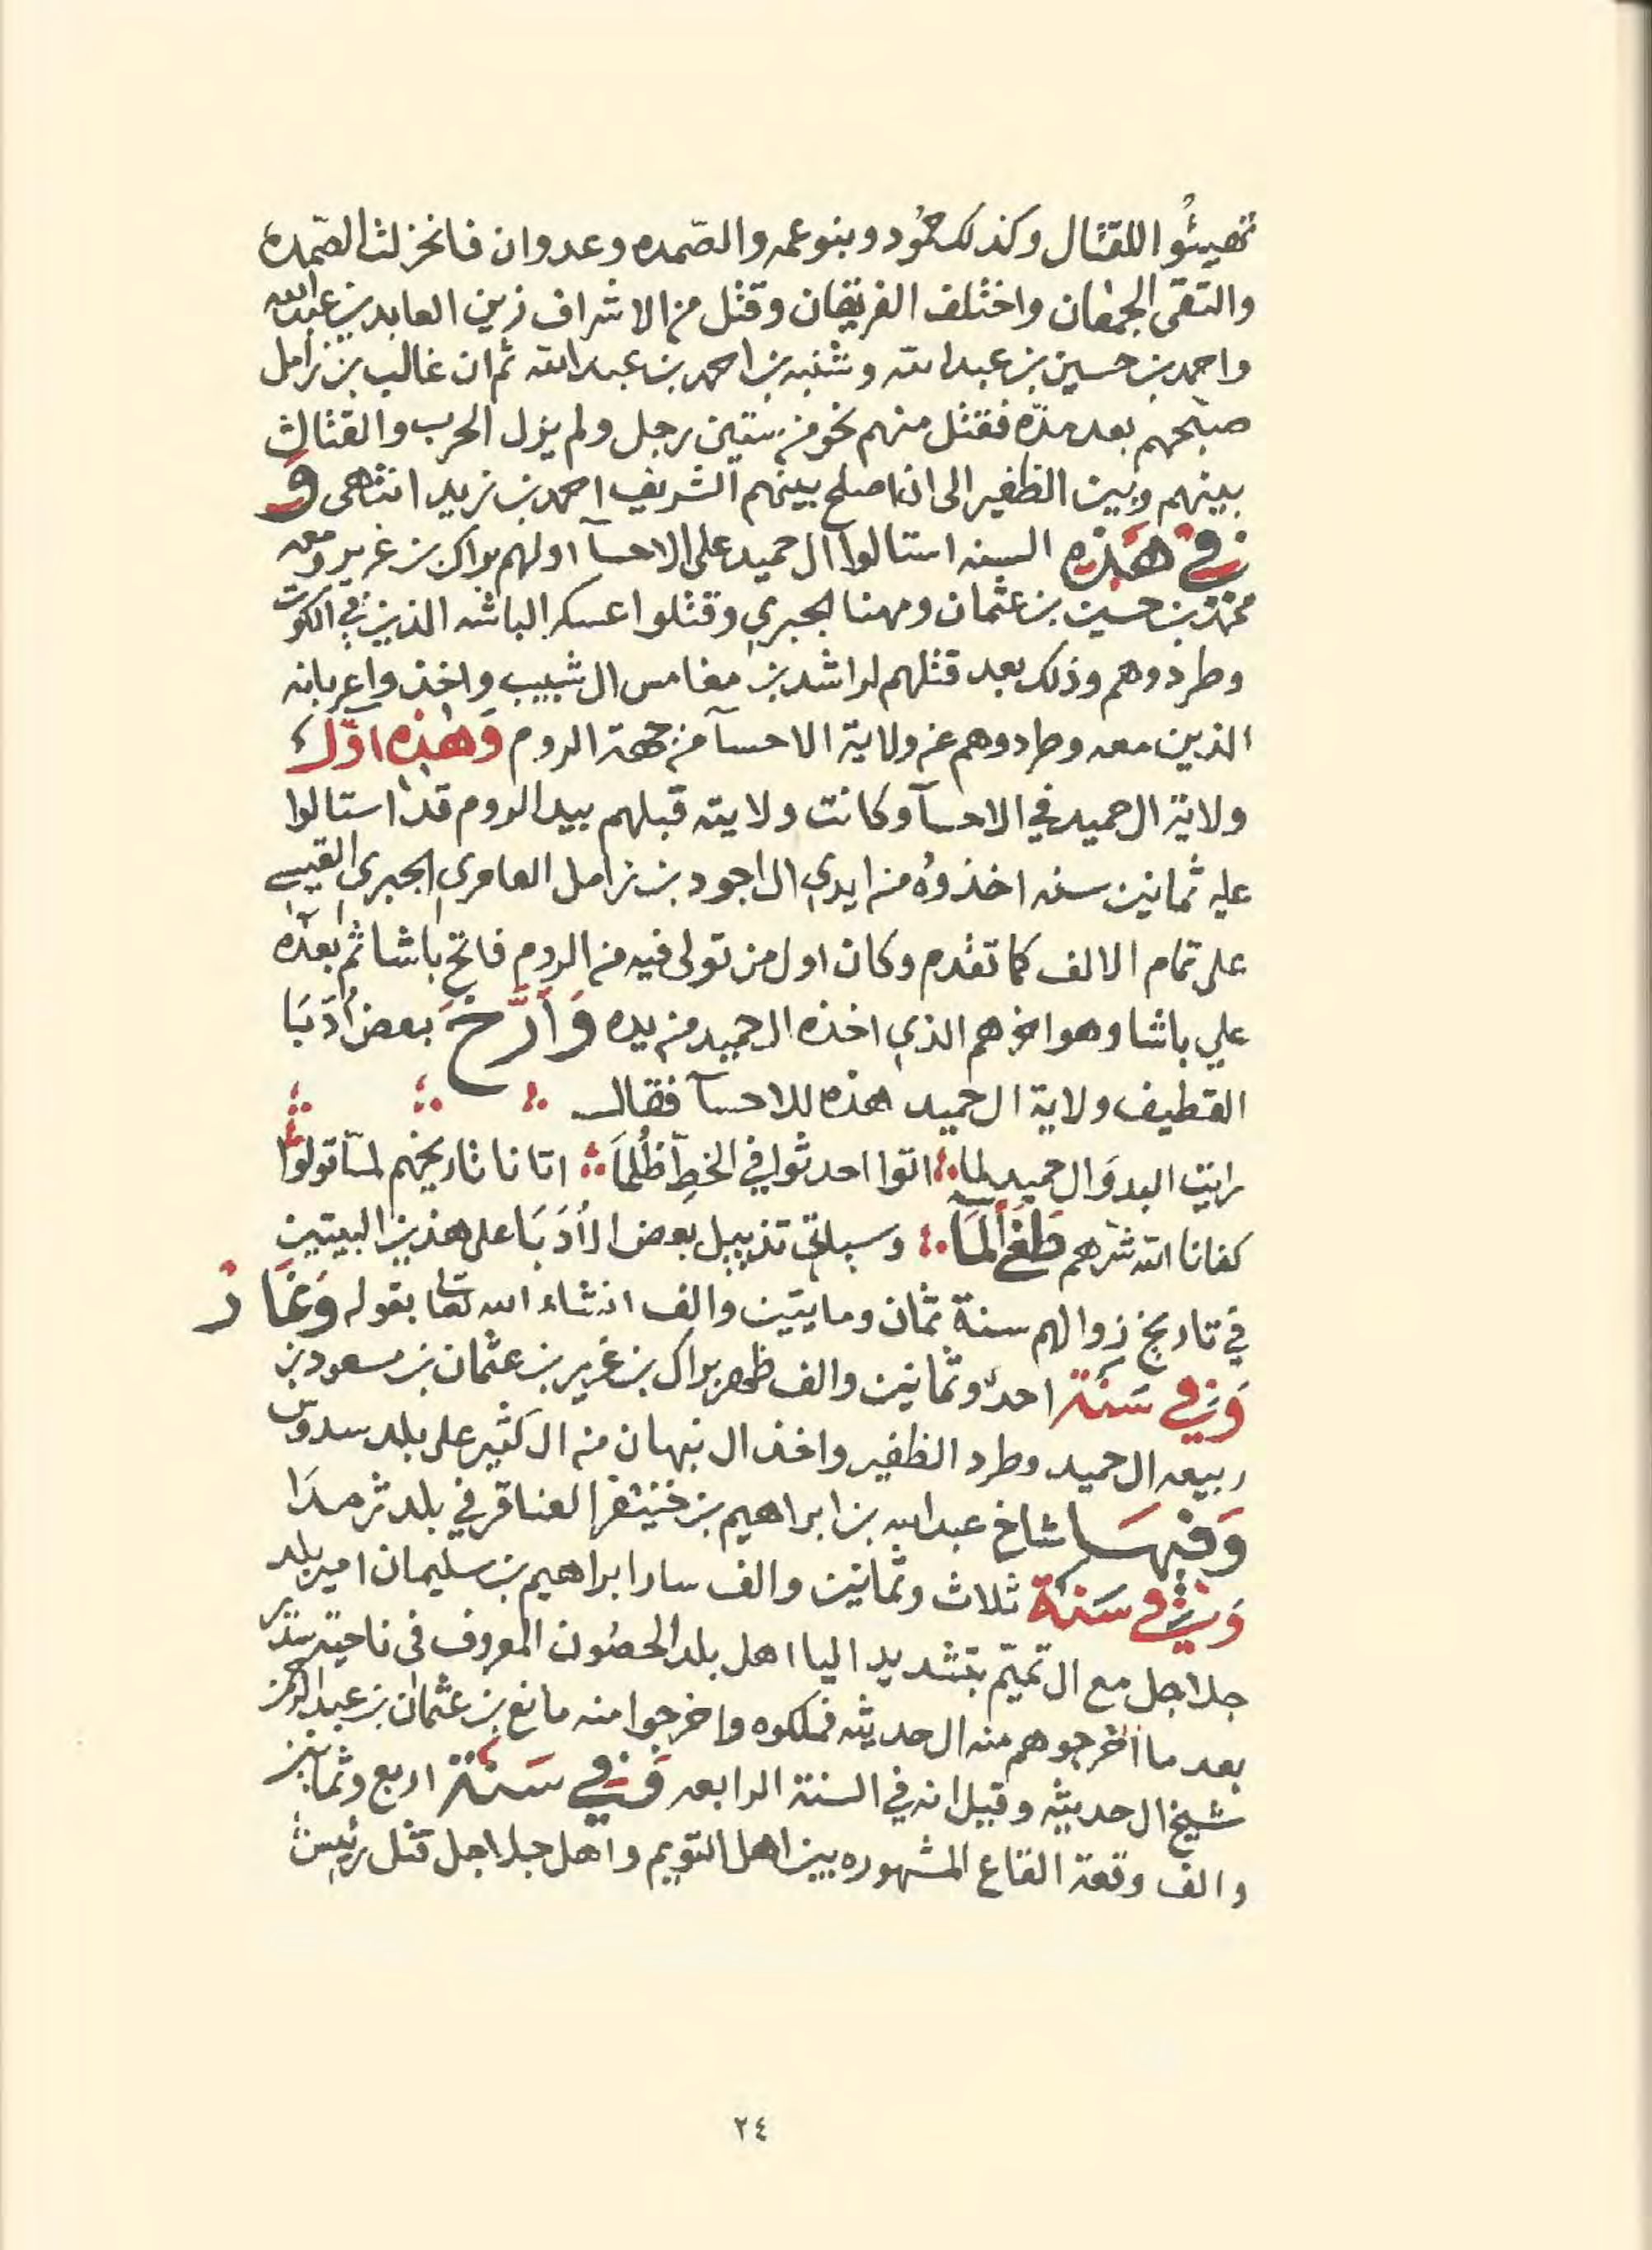 تهيئُوا للقتال وكذلك حمُود وبنو عمه والصّمده وعدوان فانخزلت الصّمده
والتقى الجمعان واختلف الفريقان وقتل من الاشراف زين العابدين بن عبدالله
واحمد بن حسين بن عبدالله وشنبه بن احمد بن عبدالله ثم ان غالب بن زامل
صبّحهم بعد مدّه فقتل منهم نحو من ستين رجل ولم يزل الحرب والقتال
بينهم وبين الظفير الى ان اصلح بينهم الشريف احمد بن زيد انتهى وَ
في هَذه السنه استالوا آل حميد على الاحسآ اولهم براك بن غرير ومعه
محمد بن حسين بن عثمان ومهنا الجبري وقتلوا عسكر الباشه الذين في الكوت
وطردوهم وذلك بعد قتلهم لراشد بن مغامس ال شبيب واخذوا عربانه
الذين معه وطردوهم عن ولاية الاحسآ من جهة الروم وَهٰذه اوّل
ولاية ال حميد في الاحسآ وكانت ولايته قبلهم بيد الروم قد استالوا
عليه ثمانين سنه اخذوهُ من ايدي ال اجود بن زامل العامري الجبري القيسي
على تمام الالف كما تقدم وكان اول من تولى فيه من الروم فاتح باشا ثم بعدَه
علي باشا وهو اخوهم الذي اخذه ال حميد من يده وَأرَّخَ بعض أدَبَا
القطيف ولاية ال حميد هذه للاحسآ فقال
رايت البدوَ ال حميد لما اتوا احدثوا في الخطِ ظُلماً اتانا تاريخهم لمّا تولوا
كفانا الله شرهم طَغَى ألمَا وسياتي تذييل بعض الأدَبَا على هذين البيتين
في تاريخ زوالهم سنة ثمان ومايتين والف انشاء الله تعالى بقوله وَغَار
وَفي سَنة احدى وثمانين والف ظهر براك بن غرير بن عثمان بن مسعود بن
ربيعه ال حميد وطرد الظفير واخذ ال نبهان من ال كثير على بلد سدوس
وَفيهَا شاخ عبدالله بن ابراهيم بن خنيفر العناقر في بلد ثرمدَا
وَفي سَنة ثلاث وثمانين والف سار ابراهيم بن سليمان امير بلد
جلاجل مع ال تميّم بتشديد اليا اهل بلد الحصُون المعروف في ناحية سدير
بعد ما اخرجوهم منه ال حديثه فملكوه واخرجوا منه مانع بن عثمان بن عبدالرحمن
شيخ ال حديثه وقيل انه في السنة الرابعه وَفي سَنة اربع وثمانين
والف وقعة القاع المشهوره بين اهل التويم واهل جلاجل قتل رئيس
٢٤